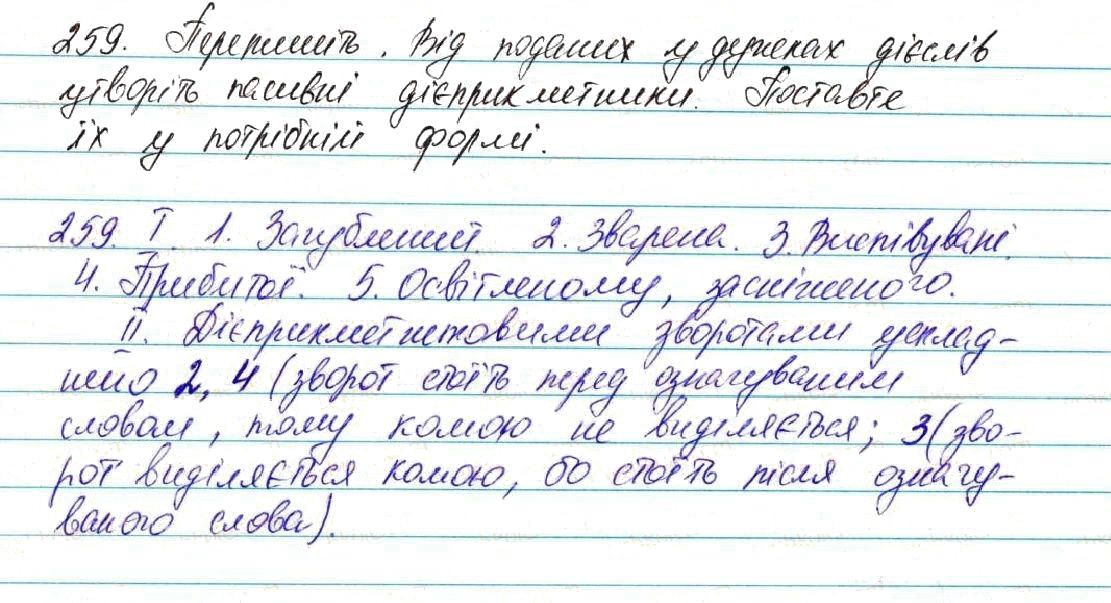 259. Перепишіть. Від поданих у дужках дієслів
утворіть пасивні дієприкметники. Поставте
їх у потрібній формі.
259. I. 1. Загублений. 2. Зварена. 3. Виспівувані.
4. Прибитої. 5. Освітленому, засніженого.
II. Дієприкметниковими зворотами усклад-
нено 2, 4 (зворот стоїть перед означуваним
словом, тому комою не виділяється; 3 (зво-
рот виділяється комою, бо стоїть після означу-
ваного слова).